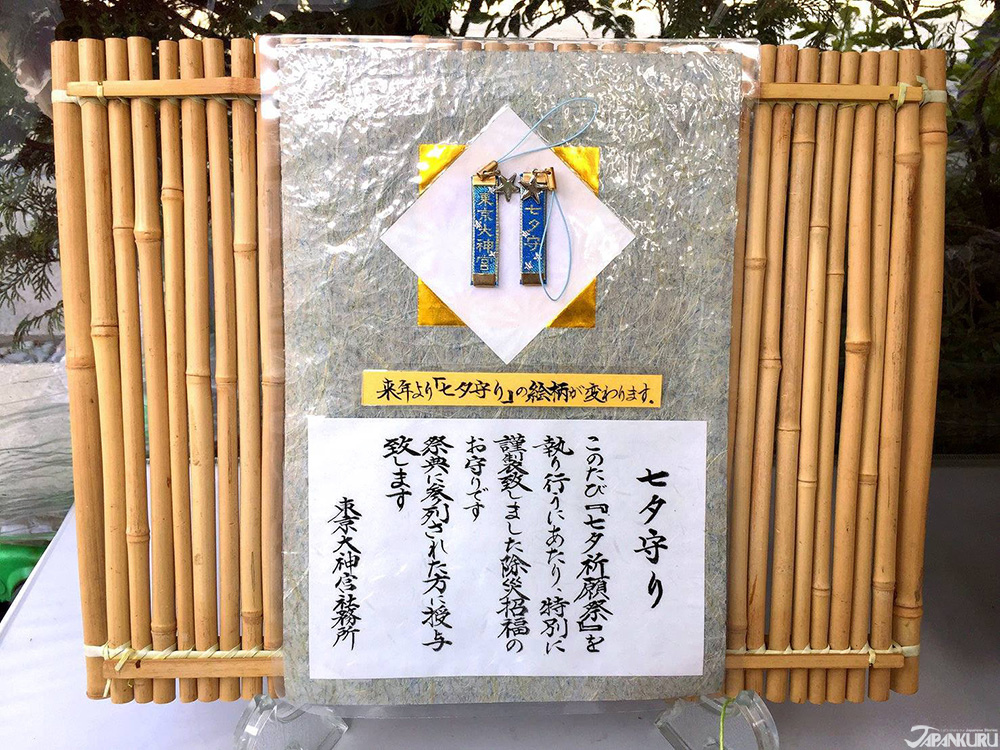 東京大神宮
七夕守
来年より「七夕守り」の絵柄が変わります。
七夕守り
このたび『七夕祈願祭』を
執り行うにあたり、特別に
謹製致しました除災招福の
お守りです
祭典に参列された方に授与
致します
東京大神宮社務所
JAPANKURU